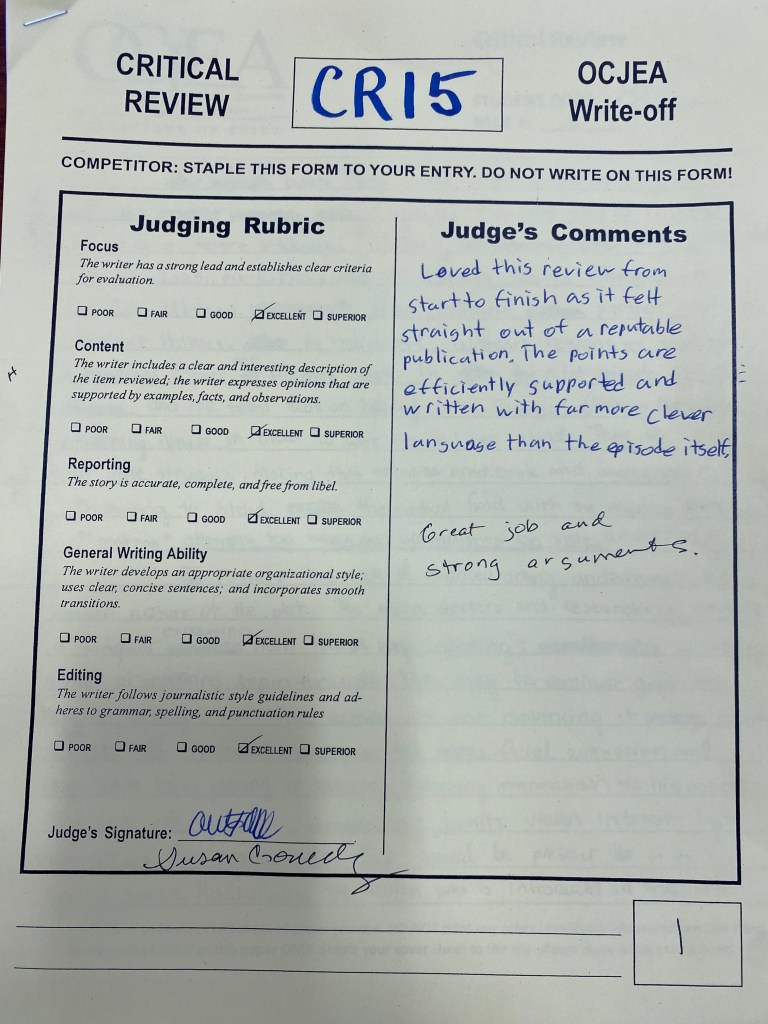 CRITICAL REVIEW
CR15
OCJEA Write-off
COMPETITOR: STAPLE THIS FORM TO YOUR ENTRY. DO NOT WRITE ON THIS FORM!
Judging Rubric
Focus
The writer has a strong lead and establishes clear criteria
for evaluation.
POOR FAIR GOOD EXCELLENT SUPERIOR
Content
The writer includes a clear and interesting description of
the item reviewed; the writer expresses opinions that are
supported by examples, facts, and observations.
POOR FAIR GOOD EXCELLENT SUPERIOR
Reporting
The story is accurate, complete, and free from libel.
POOR FAIR GOOD EXCELLENT SUPERIOR
General Writing Ability
The writer develops an appropriate organizational style;
uses clear, concise sentences; and incorporates smooth
transitions.
POOR FAIR GOOD EXCELLENT SUPERIOR
Editing
The writer follows journalistic style guidelines and ad-
heres to grammar, spelling, and punctuation rules
POOR FAIR GOOD EXCELLENT SUPERIOR
Judge's Signature:
Susan
Judge's Comments
Loved this review from
start to finish as it felt
straight out of a reputable
publication. The points are
efficiently supported and
written with far more clever
language than the episode itself.
Great job and
strong arguments.
1